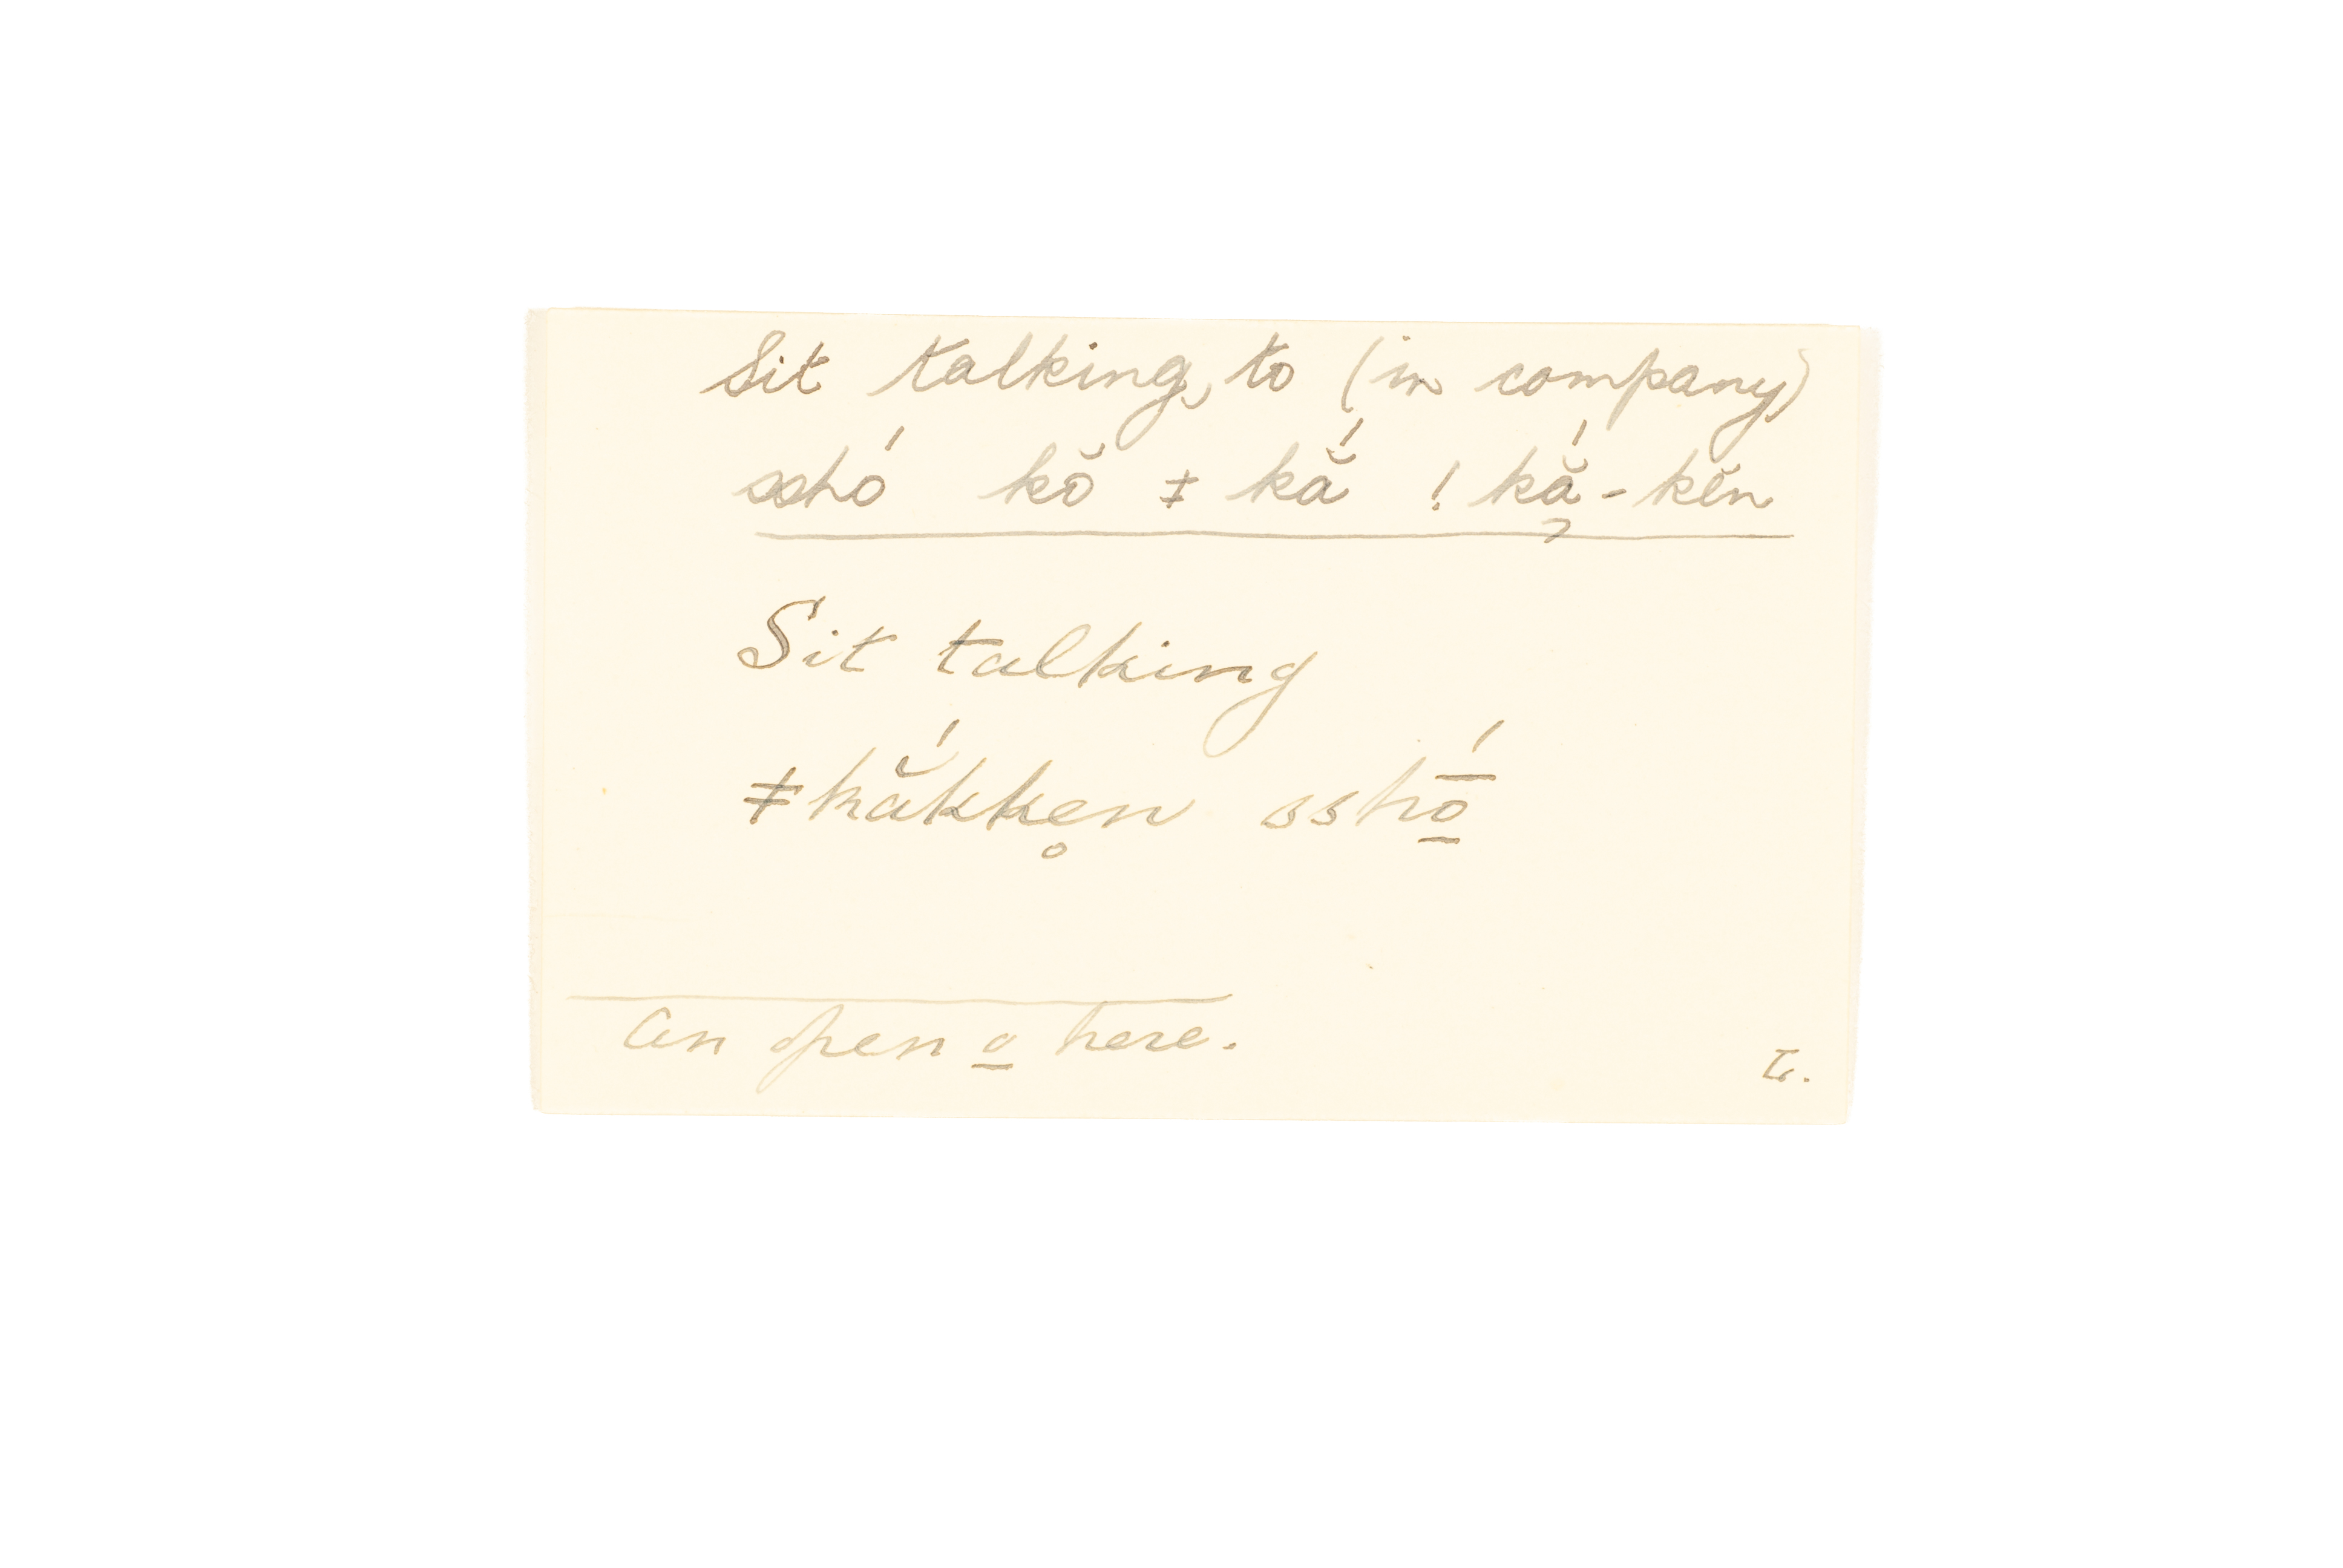 Sit talking, to (in company)
sshó kŏ ǂ kắ ! kắ̦-kĕn
Sit talking
ǂkắkken̥ sshṓ̱
An open o̱ here.
L.